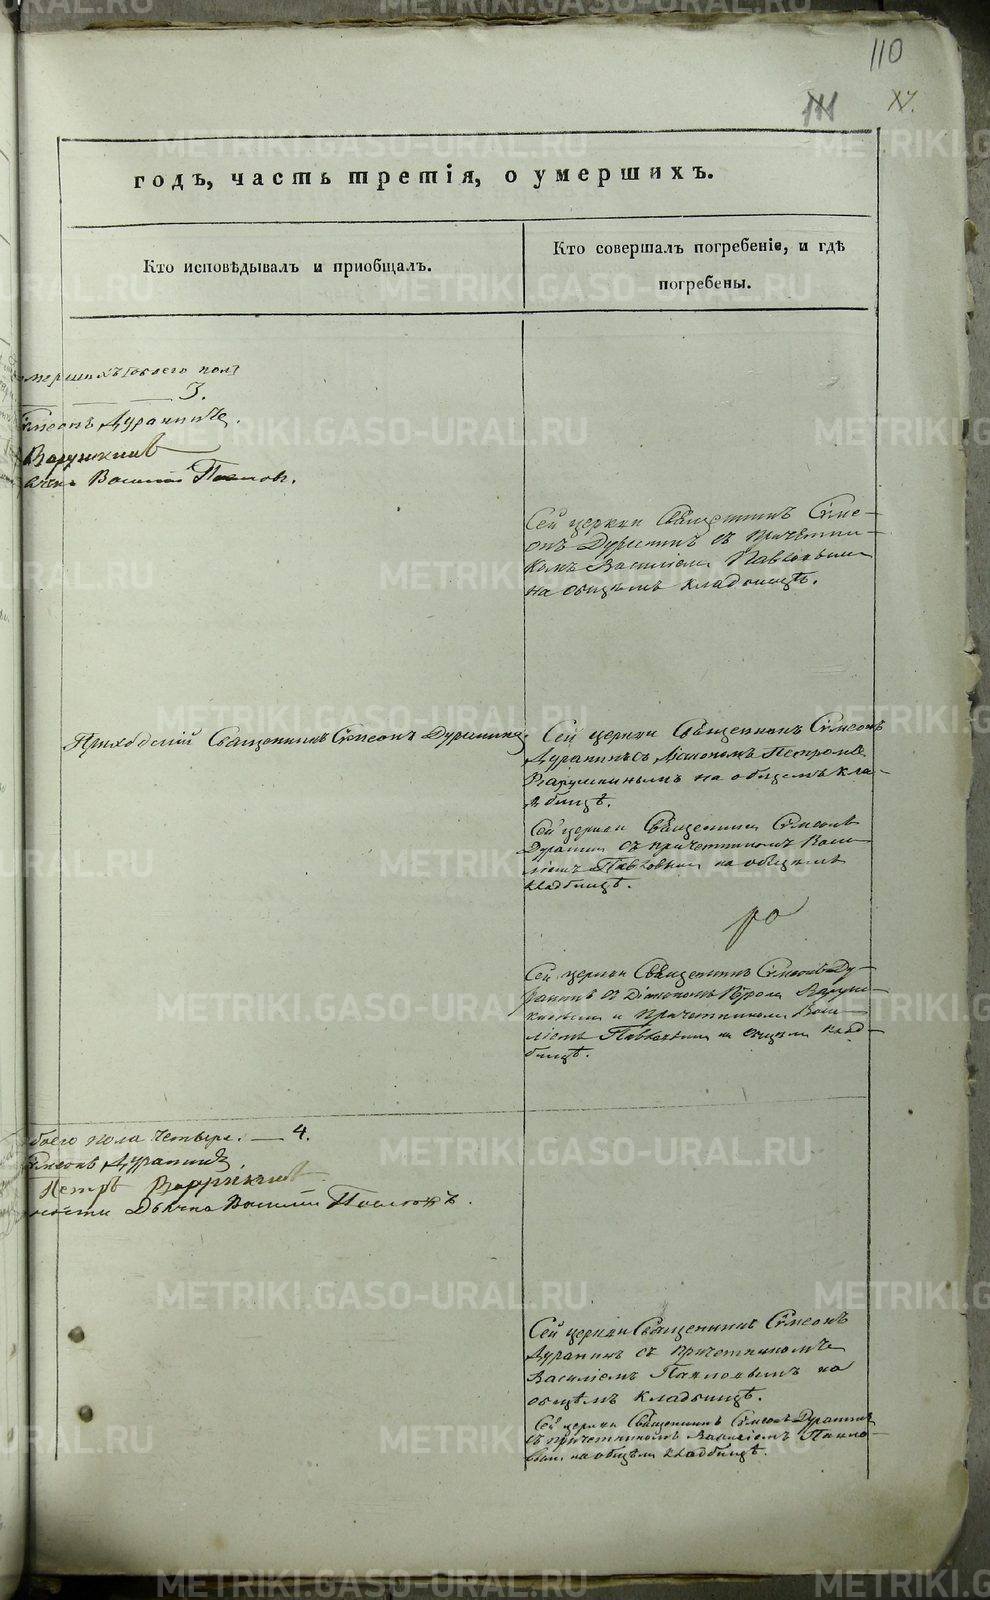 110
111
XV.
годъ, часть третія, о умершихъ.
Кто исповѣдывалъ и приобщалъ.
Кто совершалъ погребеніе, и гдѣ
погребены.
мершихъ обоего пола
3.
Сѵмеонъ Дуранинъ.
Варушкинъ
Василій Павловъ.
Сей церкви Священникъ Сѵме-
онъ Дуранинъ съ причетни-
комъ Василіемъ Павловымъ
на общемъ кладбищѣ.
Приходскій Священникъ Сѵмеонъ Дуранинъ.
Сей церкви Священникъ Сѵмеонъ
Дуранинъ съ Діакономъ Петромъ
Варушкинымъ на общемъ кла-
дбищѣ.
Сей церкви Священникъ Сѵмеонъ
Дуранин съ причетникомъ Васи-
ліемъ Павловым на общемъ
кладбищѣ.
Сей церкви Священникъ Сѵмеонъ Ду-
ранинъ съ Діакономъ Варуш-
кинымъ и причетником Васи-
ліемъ Павловым на общем клад-
бищѣ.
боего пола четыре. — 4.
Сѵмеонъ Дуранинъ
Петръ Варушкинъ
Дьячка Василій Павловъ.
Сей церкви Священникъ Сѵмеонъ
Дуранинъ съ причетникомъ
Василіемъ Павловымъ на
общемъ кладбищѣ.
Сей церкви Священникъ Сѵмеонъ Дуранинъ
съ причетникомъ Василіемъ Павло-
вым на общем кладбищѣ.
METRIKI.GASO-URAL.RU